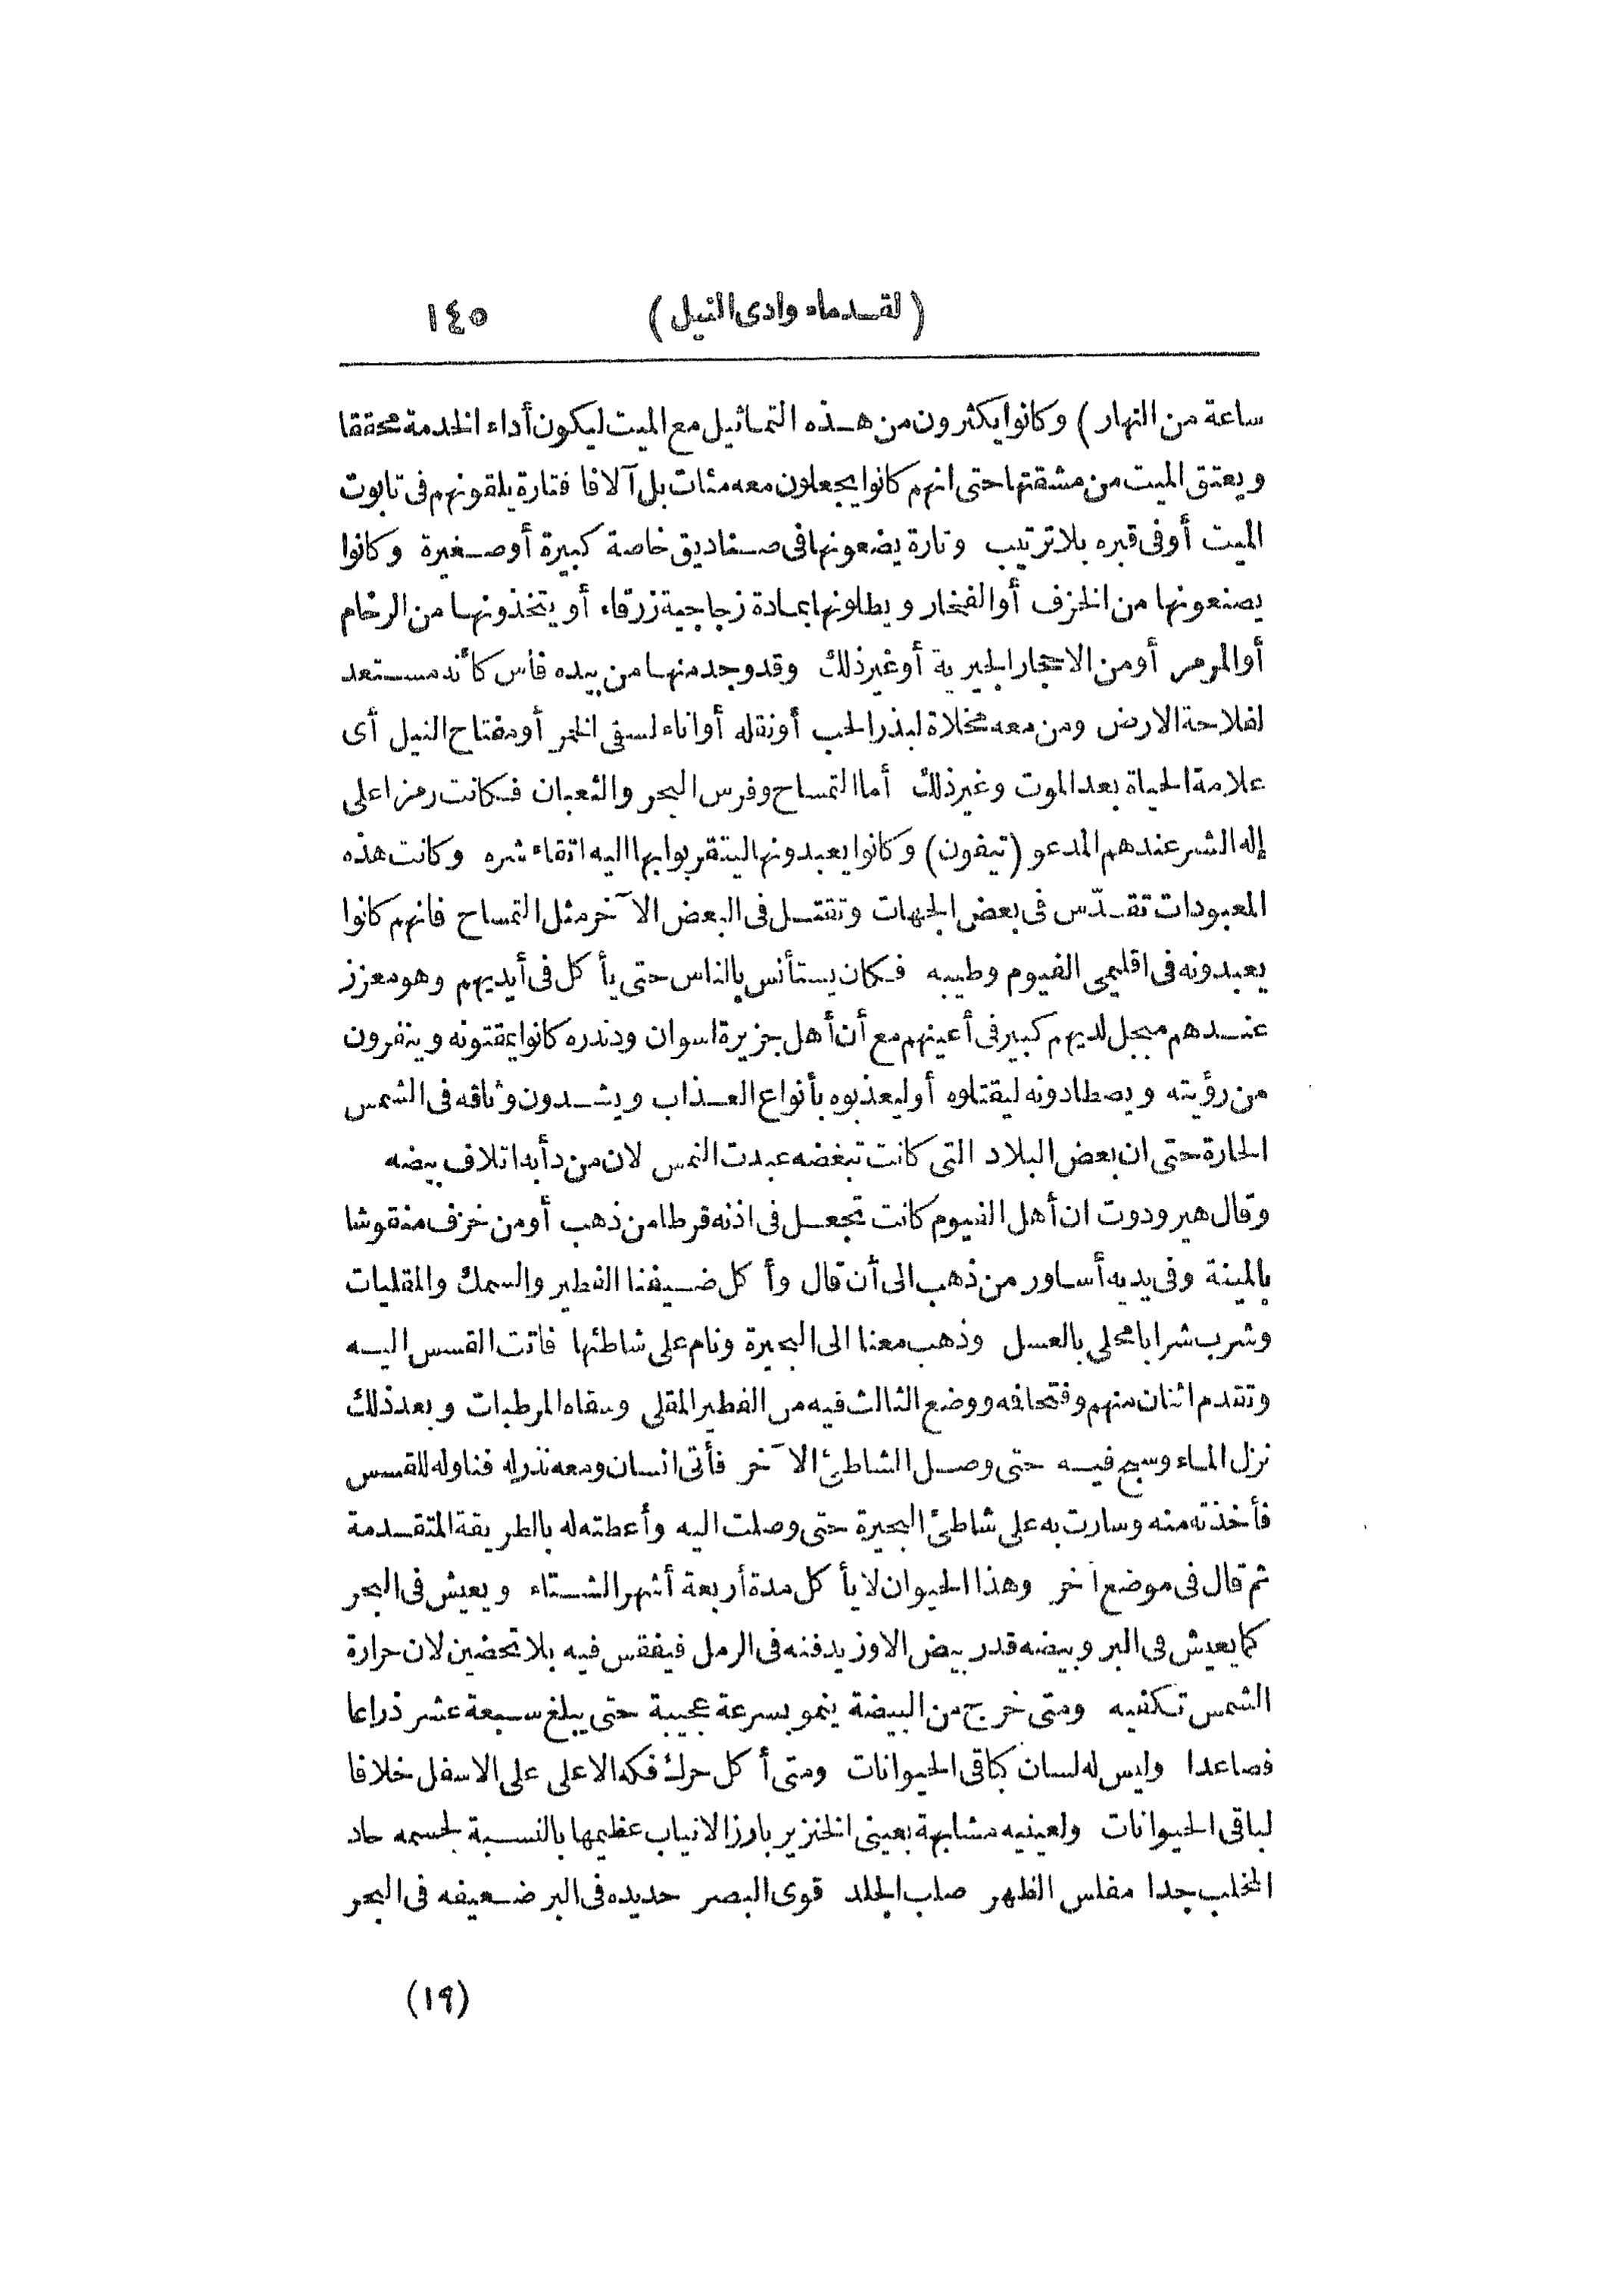 (لقدماء وادى النيل) ١٤٥
ساعة من النهار) وكانوا يكثرون من هذه التماثيل مع الميت ليكون أداء الخدمة محققا
ويعتق الميت من مشقتها حتى انهم كانوا يجعلون معه مئات بل آلافا فتارة يلقونهم فى تابوت
الميت أوفى قبره بلا ترتيب وتارة يضعونها فى صناديق خاصة كبيرة أوصغيرة وكانوا
يصنعونها من الخزف أوالفخار ويطلونها بمادة زجاجية زرقاء أو يتخذونها من الرخام
أوالمرمر أومن الاحجار الجيرية أوغيرذلك وقدوجد منها من بيده فأس كأنه مستعد
لفلاحة الارض ومن معه مخلاة لبذر الحب أونقله أواناء لسقى الخمر أومفتاح النيل أى
علامة الحياة بعد الموت وغيرذلك أما التمساح وفرس البحر والثعبان فكانت رمزا على
إله الشر عندهم المدعو (تيفون) وكانوا يعبدونها ليتقربوا بها اليه اتقاء شره وكانت هذه
المعبودات تقدّس فى بعض الجهات وتقتل فى البعض الآخر مثل التمساح فانهم كانوا
يعبدونه فى اقليمى الفيوم وطيبه فكان يستأنس بالناس حتى يأكل فى أيديهم وهو معزز
عندهم مبجل لديهم كبير فى أعينهم مع أن أهل جزيرة اسوان ودندره كانوا يمقتونه وينفرون
من رؤيته ويصطادونه ليقتلوه أوليعذبوه بأنواع العذاب ويشدون وثاقه فى الشمس
الحارة حتى ان بعض البلاد التى كانت تبغضه عبدت النمس لان من دأبه اتلاف بيضه
وقال هيرودوت ان أهل الفيوم كانت تجعل فى اذنه قرطا من ذهب أومن خزف منقوشا
بالمينة وفى يديه أساور من ذهب الى أن قال وأكل ضيفنا الفطير والسمك والمقليات
وشرب شرابا محلى بالعسل وذهب معنا الى البحيرة ونام على شاطئها فاتت القسس اليه
وتقدم اثنان منهم وفتحافه ووضع الثالث فيه من الفطير المقلى وسقاه المرطبات وبعدذلك
نزل الماء وسبح فيه حتى وصل الشاطئ الآخر فأتى انسان ومعه نذرله فناوله للقسس
فأخذته منه وسارت به على شاطئ البحيرة حتى وصلت اليه وأعطته له بالطريقة المتقدمة
ثم قال فى موضع اخر وهذا الحيوان لا يأكل مدة أربعة أشهر الشتاء ويعيش فى البحر
كما يعيش فى البر وبيضه قدر بيض الاوز يدفنه فى الرمل فيفقس فيه بلا تحضين لان حرارة
الشمس تكفيه ومتى خرج من البيضة ينمو بسرعة عجيبة حتى يبلغ سبعة عشر ذراعا
فصاعدا وليس له لسان كباقى الحيوانات ومتى أكل حرك فكه الاعلى على الاسفل خلافا
لباقى الحيوانات ولعينيه مشابهة بعينى الخنزير بارزالانياب عظيمها بالنسبة لجسمه حاد
المخلب جدا مفلس الظهر صلب الجلد قوى البصر حديده فى البر ضعيفه فى البحر
(١٩)